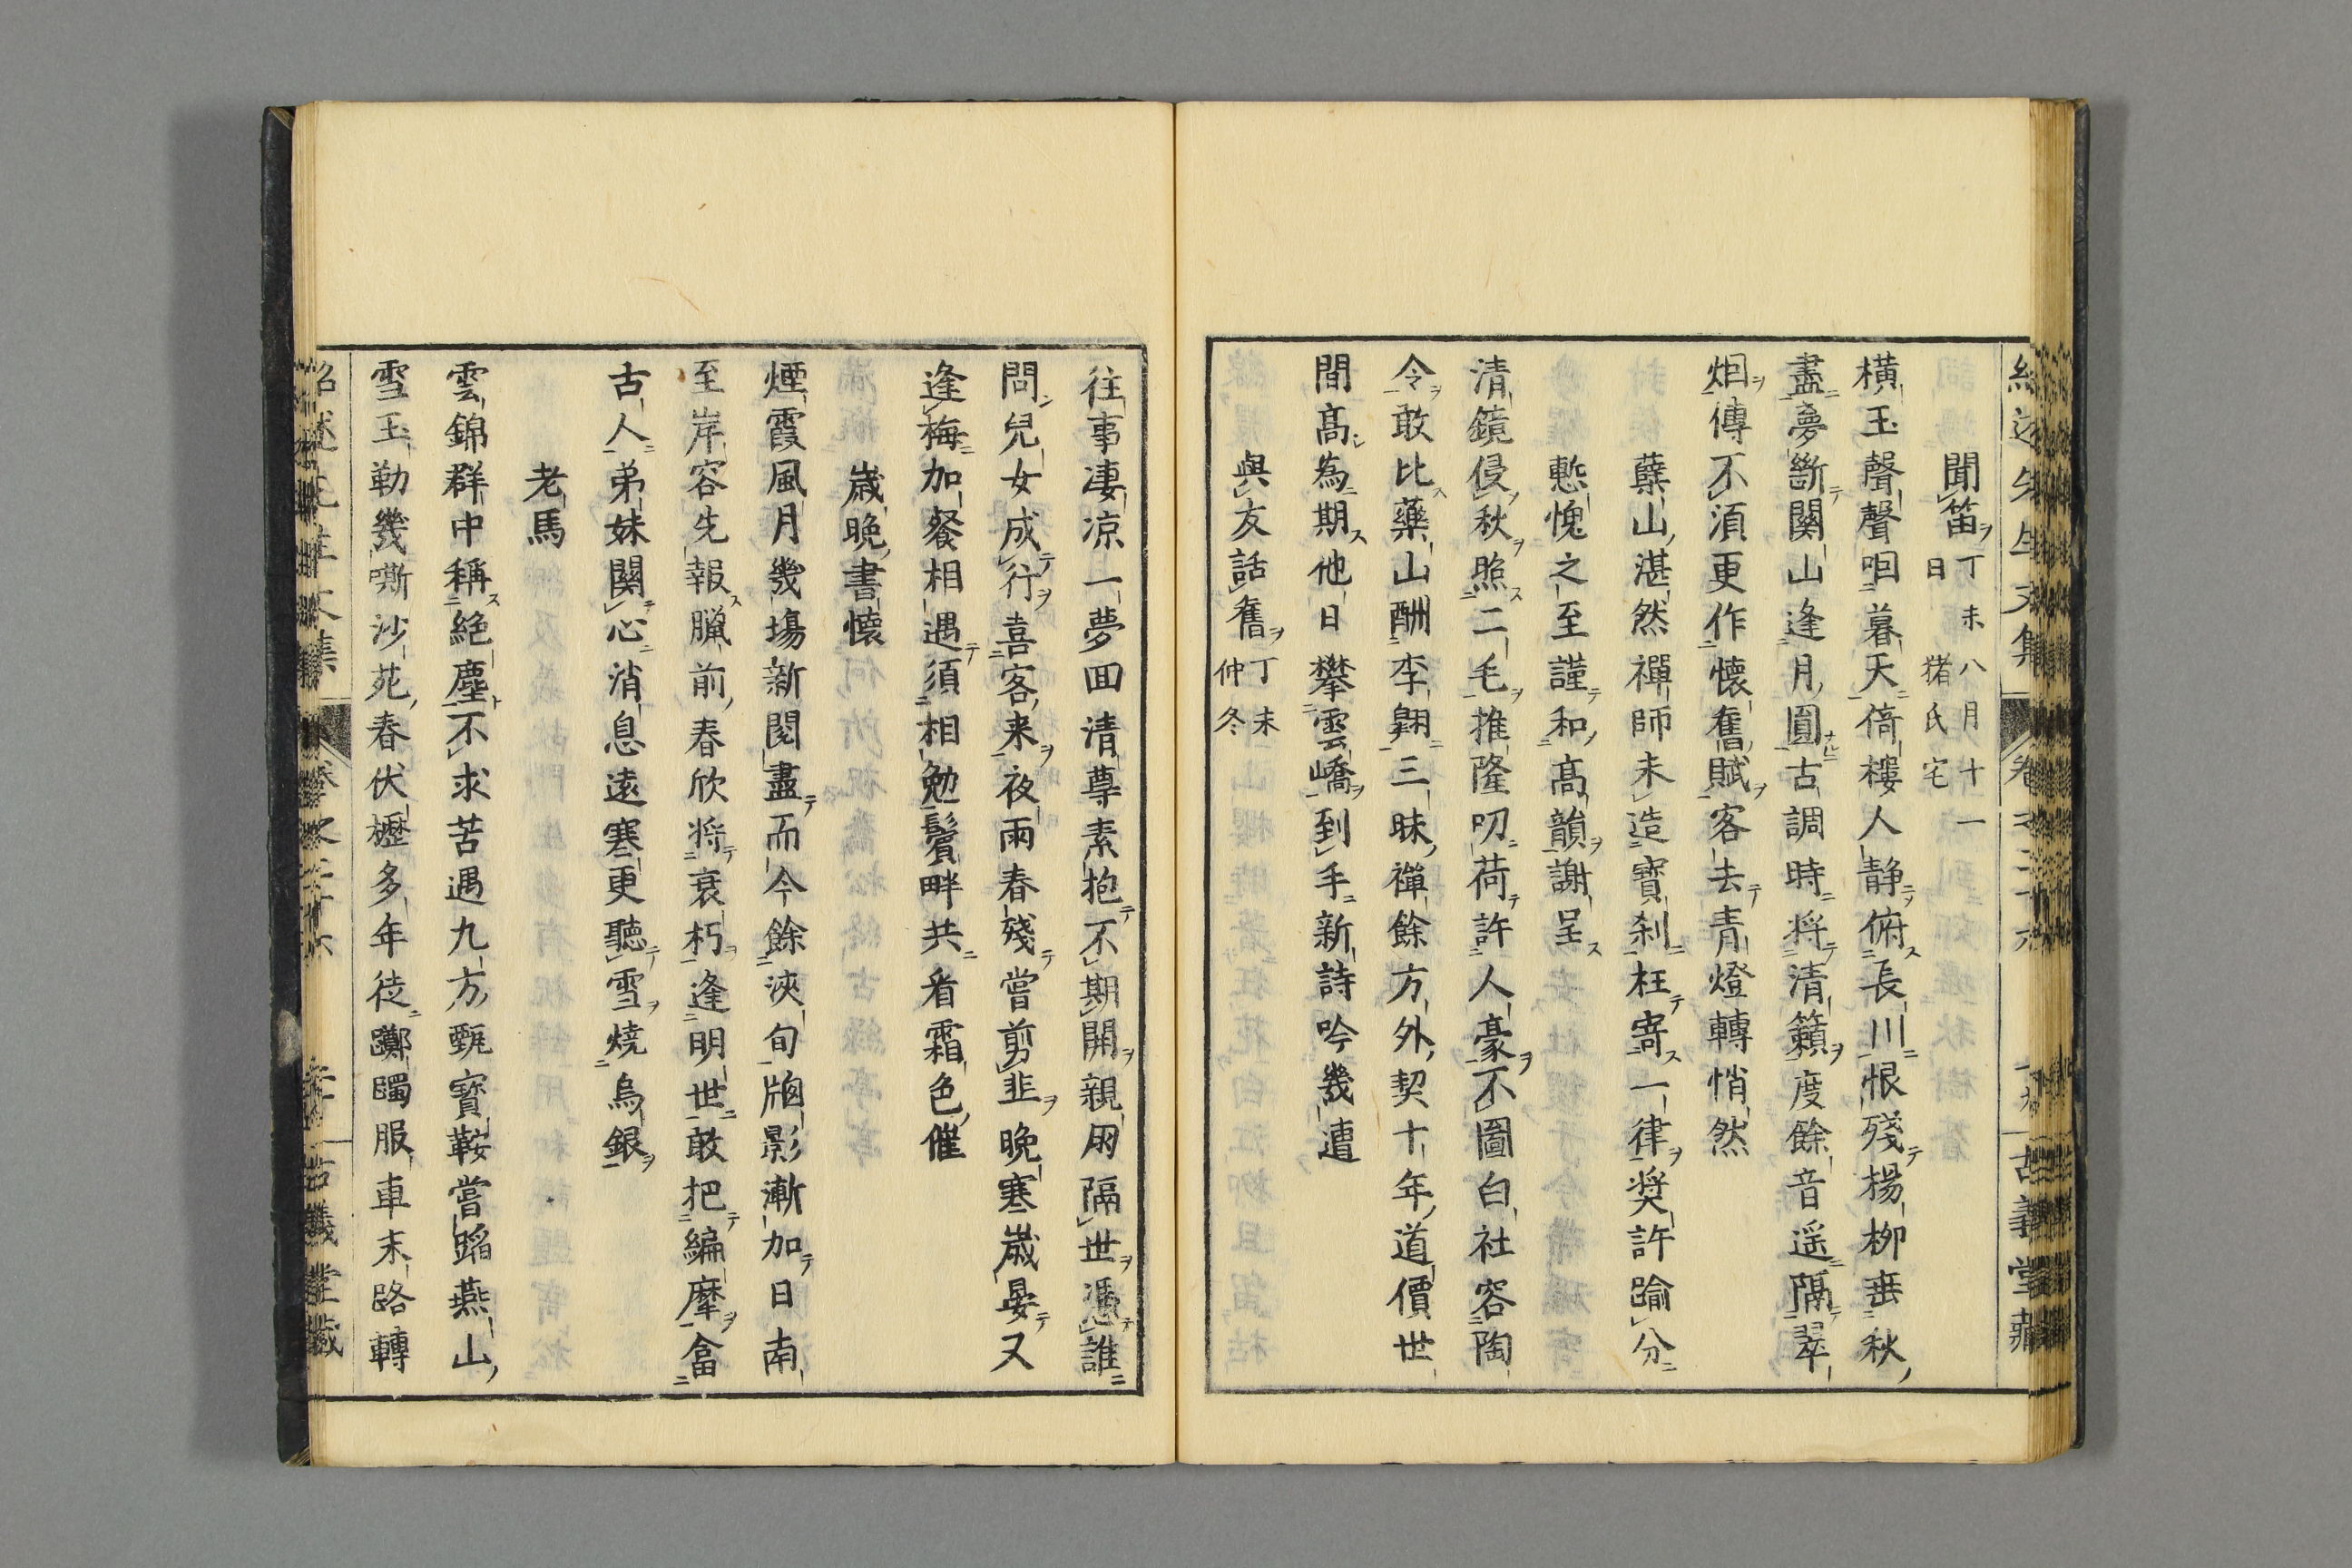 聞笛 丁未八月十一
日猪氏宅
橫玉聲聲咽暮天倚樓人静俯長川恨殘楊柳垂秋
盡夢斷關山逢月圓古調時將清籟度餘音遥隔翠
烟傳不須更作懷舊賦客去青燈轉悄然
蘖山湛然禪師未造寶刹枉寄一律奬許踰分
慙愧之至謹和高韻謝呈
清鏡侵秋照二毛推隆叨荷許人豪不圖白社容陶
令敢比藥山酬李翺三昧禪餘方外契十年道價世
間髙為期他日攀雲嶠到手新詩吟幾遭
與友話舊 丁未
仲冬
往事凄凉一夢囬清尊素抱不期開親朋隔世憑誰
問兒女成行喜客来夜雨春殘嘗剪韭晚寒歳晏又
逢梅加餐相遇須相勉鬢畔共看霜色催
歳晩書懷
煙霞風月幾塲新閲盡而今餘浹旬牕影漸加日南
至岸容先報臘前春欣將衰朽逢明世敢把編摩畣
古人弟妹關心消息遠寒更聽雪燒烏銀
老馬
雲錦群中稱絶塵不求苦遇九方甄寳鞍嘗蹈燕山
雪玉勒幾嘶沙苑春伏櫪多年徒躑躅服車末路轉
紹述先生文集 卷之二十六 古義堂藏